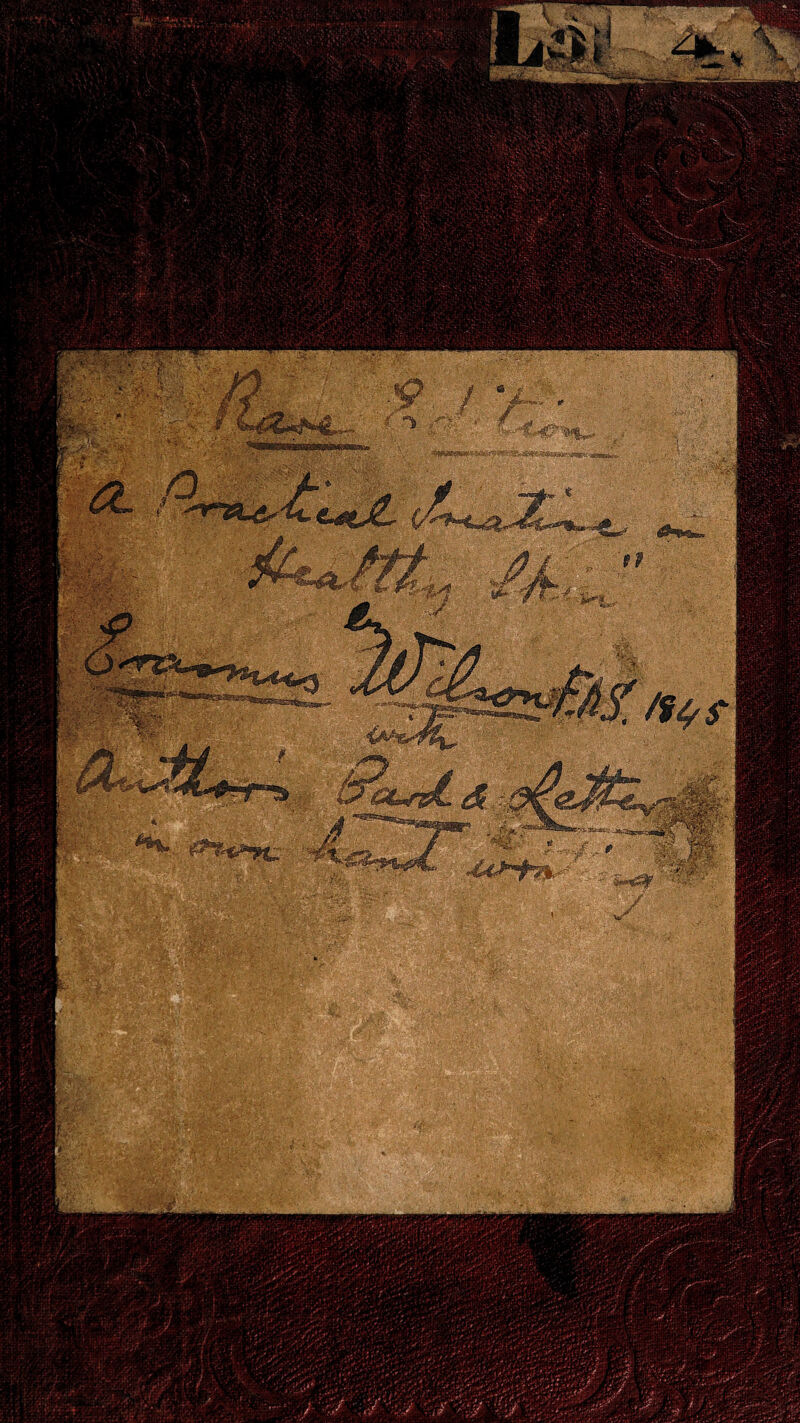 Rare Edition
a Practical Treatise on
Healthy Skin"
by
Erasmus Wilson F.R.S. 1845
with
Author's Card & Letter
in own hand writing